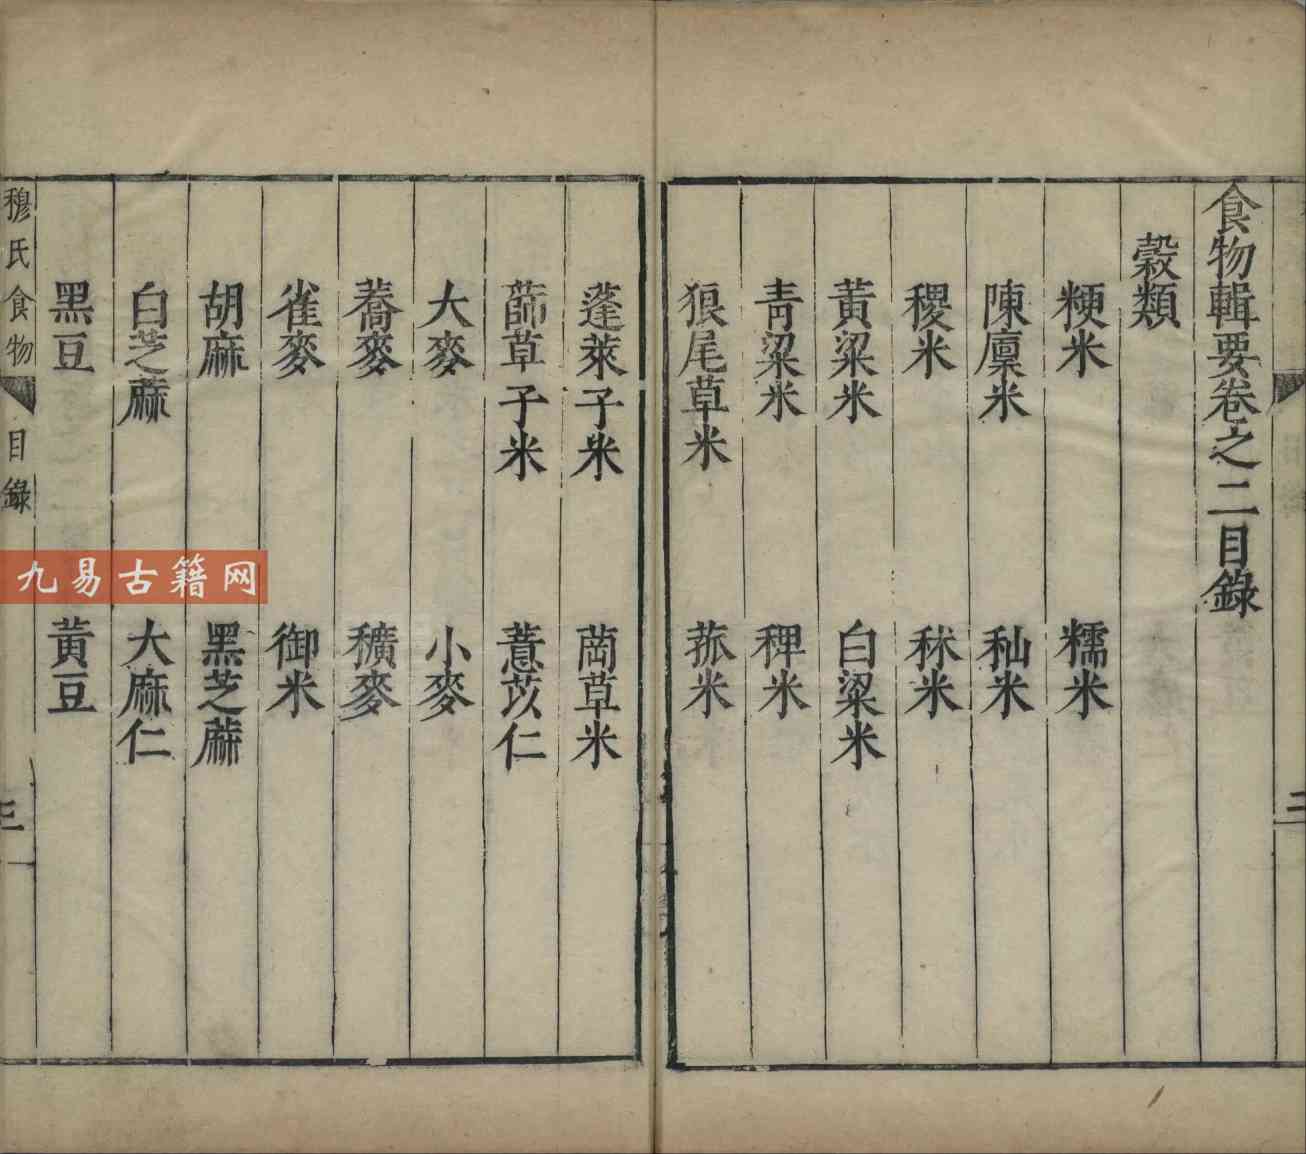 食物輯要卷之二目錄
穀類
粳米　糯米
陳廩米　秈米
稷米　秫米
黃粱米　白粱米
青粱米　稗米
狼尾草米　菰米
蓬萊子米　𦬼草米
蒒草子米　薏苡仁
大麥　小麥
蕎麥　穬麥
雀麥　御米
胡麻　黑芝蔴
白芝蔴　大麻仁
黑豆　黃豆
穆氏食物　目錄　三
九易古籍网